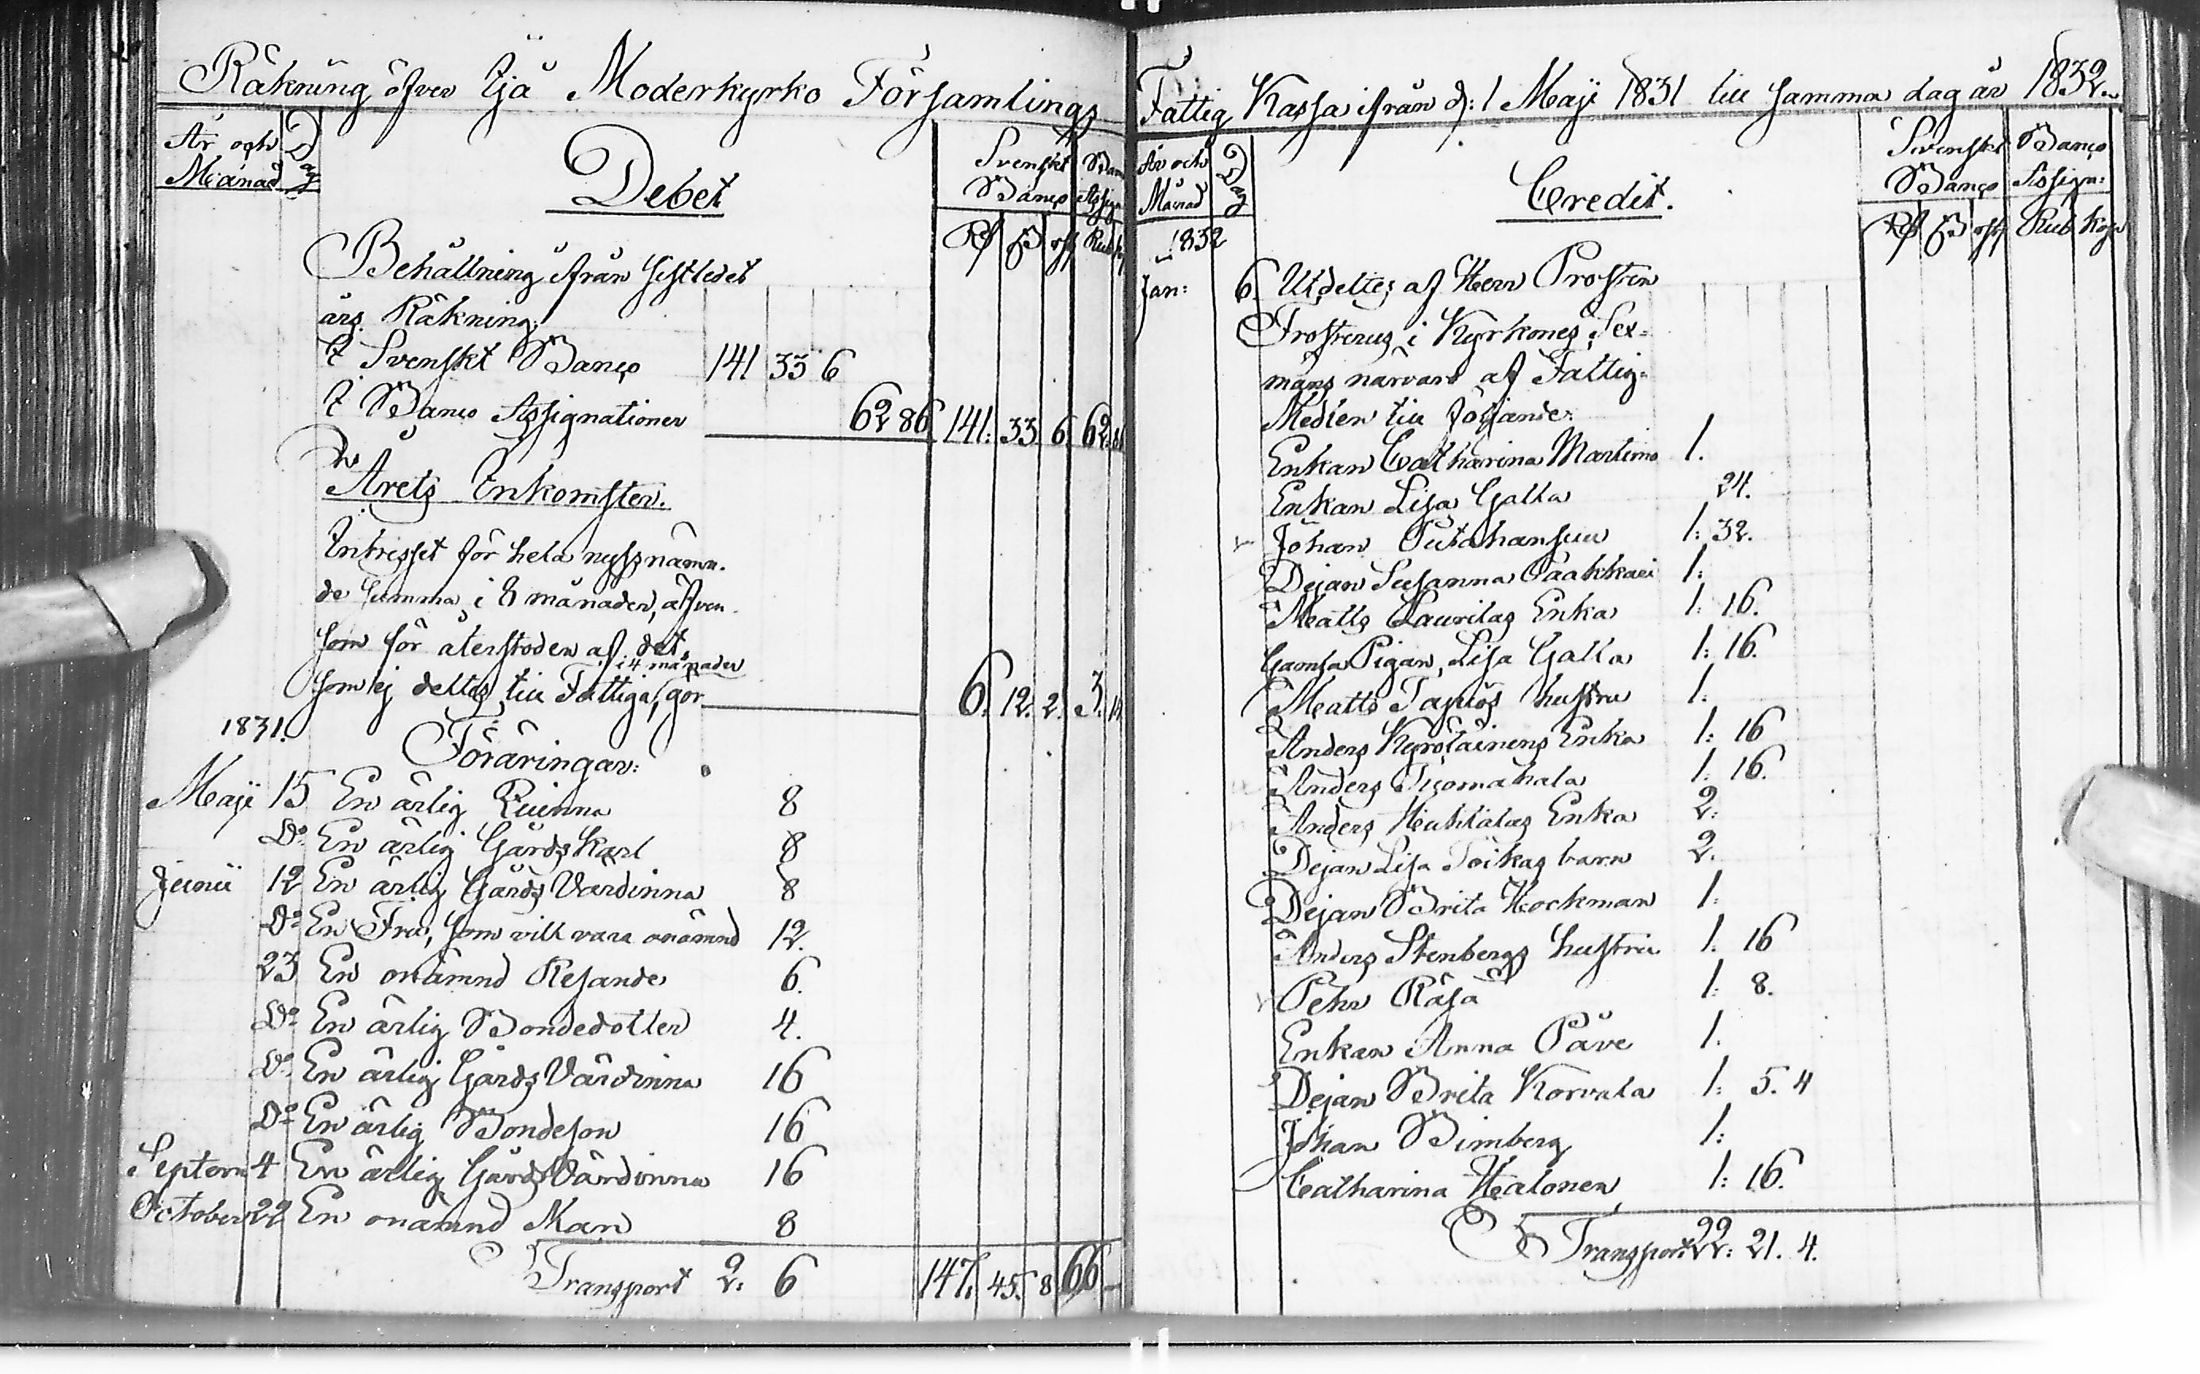 Räkning öfver Ijå Moderkyrko Församlings
År och
Månad
Dag
Debet
Svenskt
Banco
Banco
Assign
Rd ß rst Rub
Behållning ifrån sistledet
års Räkning.
I Svenskt Banco 141 33 6
I Banco Assignationer 62 86 141: 33 6. 62.86
Årets Inkomster.
Intresset för hela nyssnämn-
de summa i 8 månader, äfven-
som för återstoden af det,
som ej deltes till Fattiga, i 4 månader gör 6. 12. 2. 3. 14
1831.
Föräringar:
Maji 15 En ärlig Quinna 8
Do En ärlig Gårds Karl 8
Junii 12 En ärlig Gårds Värdinna 8
Do En Fru, som vill vara onämnd 12.
23 En onämnd Resande 6.
Do En ärlig Bondedotter 4.
Do En ärlig Gårds Värdinna 16
Do En ärlig Bondeson 16
Septem 4 En ärlig Gårds Värdinna 16
October 22 En onämnd Man 8
Transport 2: 6 147. 45. 8 66 —
Fattig Kassa ifrån d: 1 Maji 1831 till samma dag år 1832.
År och
Månad
Dag
Credit.
Svenskt
Banco
Banco
Assign:
Rd ß rst Rub Kop
1832
Jan: 6. Utdeltes af Herr Prosten
Frosterus i Kyrkones Sex-
mäns närvaro af Fattig-
Medlen till följande:
Enkan Catharina Martimo 1.
Enkan Lisa Galla 24.
Johan Outahansuu 1: 32.
Dejan Susanna Paakkari 1:
Matts Laurilas Enka 1: 16.
Gamla Pigan, Lisa Galla 1: 16.
Matts Tapios hustru 1:
Anders Kyröläinens Enka 1: 16
Anders Tuomahala 1: 16.
Anders Huhtalas Enka 2:
Dejan Lisa Toikas barn 2.
Dejan Brita Hockman 1:
Anders Stenbergs hustru 1: 16
Pehr Räsä 1: 8.
Enkan Anna Påve 1.
Dejan Brita Korvala 1: 5. 4
Johan Bimberg 1:
Catharina Halonen 1: 16.
Transport 22: 21. 4.